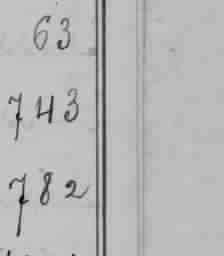 63
743
782